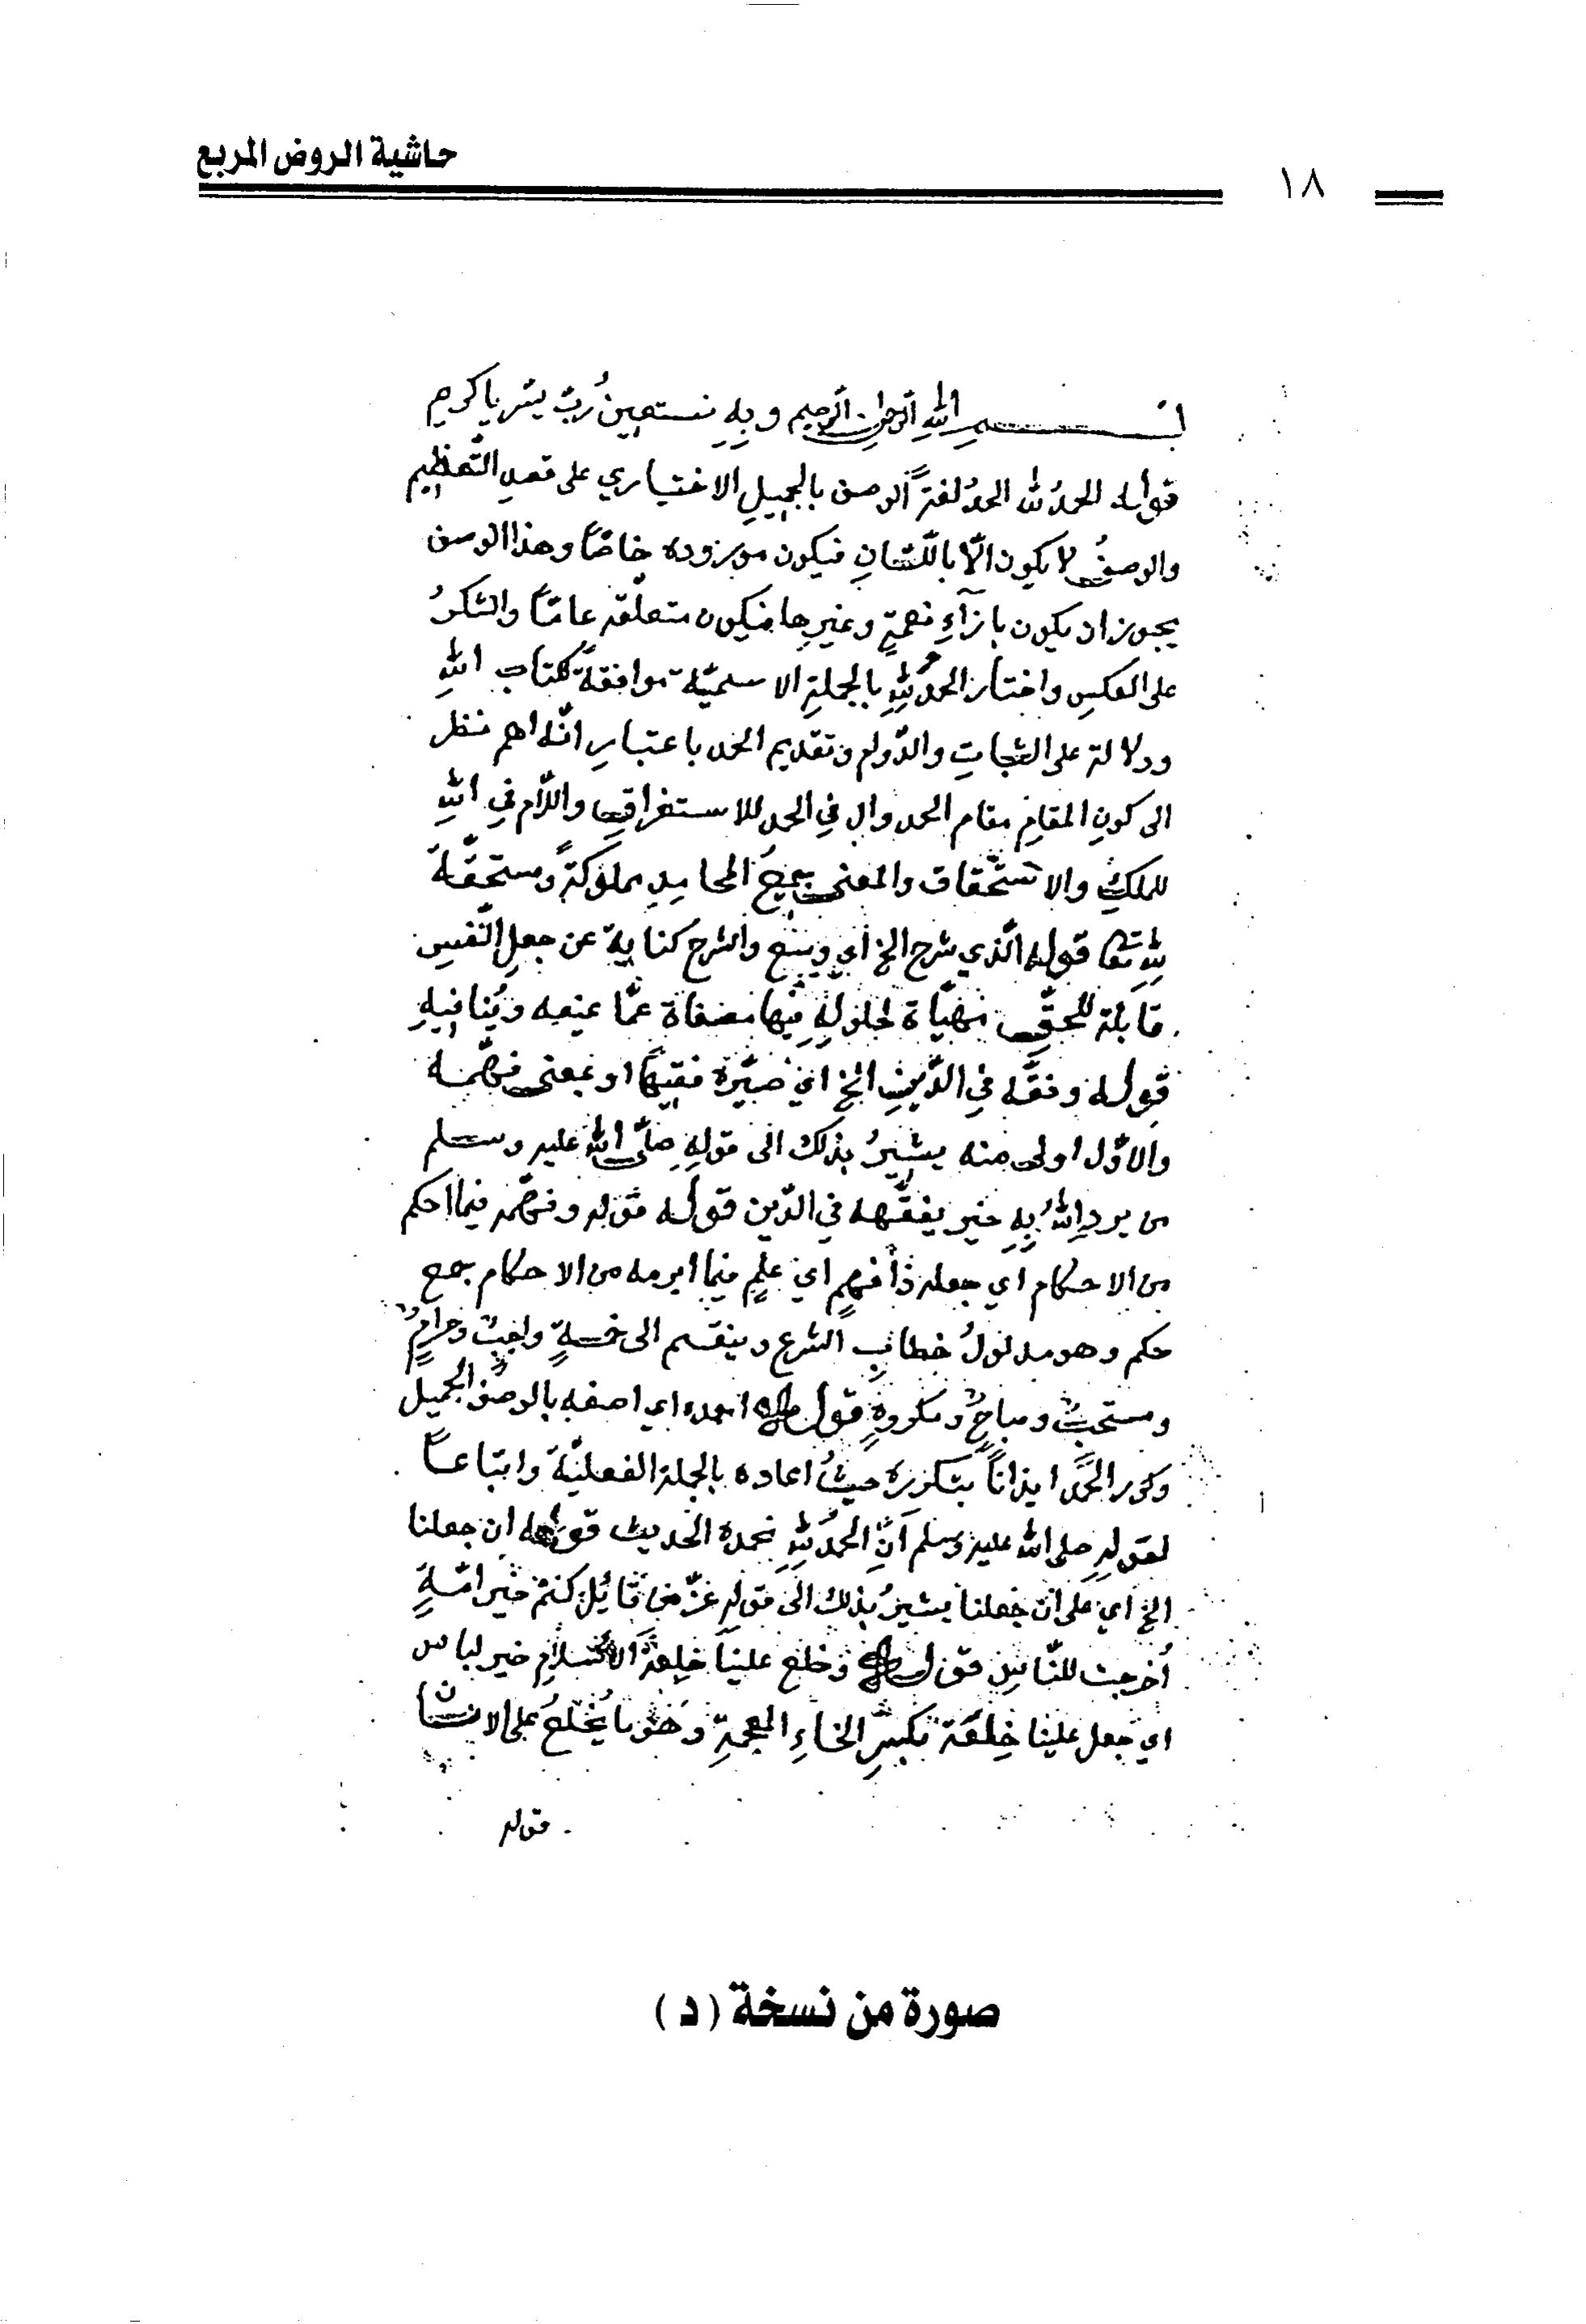 حاشية الروض المربع
١٨
بسم الله الرحمن الرحيم وبه نستعين رب يسر يا كريم
قوله الحمد لله الحمد لغةً الوصف بالجميل الاختياري على قصد التعظيم
والوصفُ لا يكون الّا باللّسانِ فيكون مورده خاصًا وهذا الوصف
يجوز ان يكون بازآءِ نعمةٍ وغيرها فيكون متعلّقه عامًّا والشكرُ
على العكسِ واختار الحمدُ للهِ بالجملةِ الاسميّة موافقةً لكتاب اللهِ
ودلالة على الثباتِ والدّوام وتقديم الحمد باعتبار انّه اهم نظر
الى كونِ المقامِ مقام الحمد وال في الحمد للاستغراقِ واللّام في للهِ
للملكِ والاستحقاق والمعنى جميعُ المحامدِ مملوكةً ومستحقّةً
للهِ تعا قوله الّذي شرح الخ أي وسّع والشرح كناية عن جعلِ النّفسِ
قابلة للحقِّ مهيّاة لحلولهِ فيها مصفاة عمّا يمنعه ويُنافيهِ
قوله وفقّه في الدّينِ الخ اي صيّره فقيهًا او بمعنى فهّمه
والاوّل اولى منه يشيرُ بذلك الى قولهِ صلّى الله عليه وسلم
من يردِ اللهُ بهِ خير يفقّهه في الدّين قوله قوله وفهّمه فيما احكم
من الاحكام أي جعله ذا فهمٍ اي علمٍ فيما ابرمه من الاحكام جمع
حكم وهو مدلولُ خطابِ الشرع وينقسم الى خمسةٍ واجبٌ وحرامٌ
ومستحبٌ ومباحٌ ومكروهٍ قوله احمده اي اصفه بالوصف الجميل
وكرر الحمدَ ايذاناً بتكرره حيثُ اعاده بالجملة الفعليّة واتباعاً
لقوله صلى الله عليه وسلم أنِّ الحمدُ للهِ نحمدهُ الحديث قوله ان جعلنا
الخ أي على ان جعلنا يشيرُ بذلك الى قولهِ عزّ من قائل كنتم خير امّةٍ
أخرجت للنّاسِ قوله وخلع علينا خلعةَ الاسلامِ خير لباس
اي جعل علينا خِلعَة بكسرِ الخاءِ المعجمةِ وهو ما يُخلعُ على الانسان
قوله
صورة من نسخة ( د )